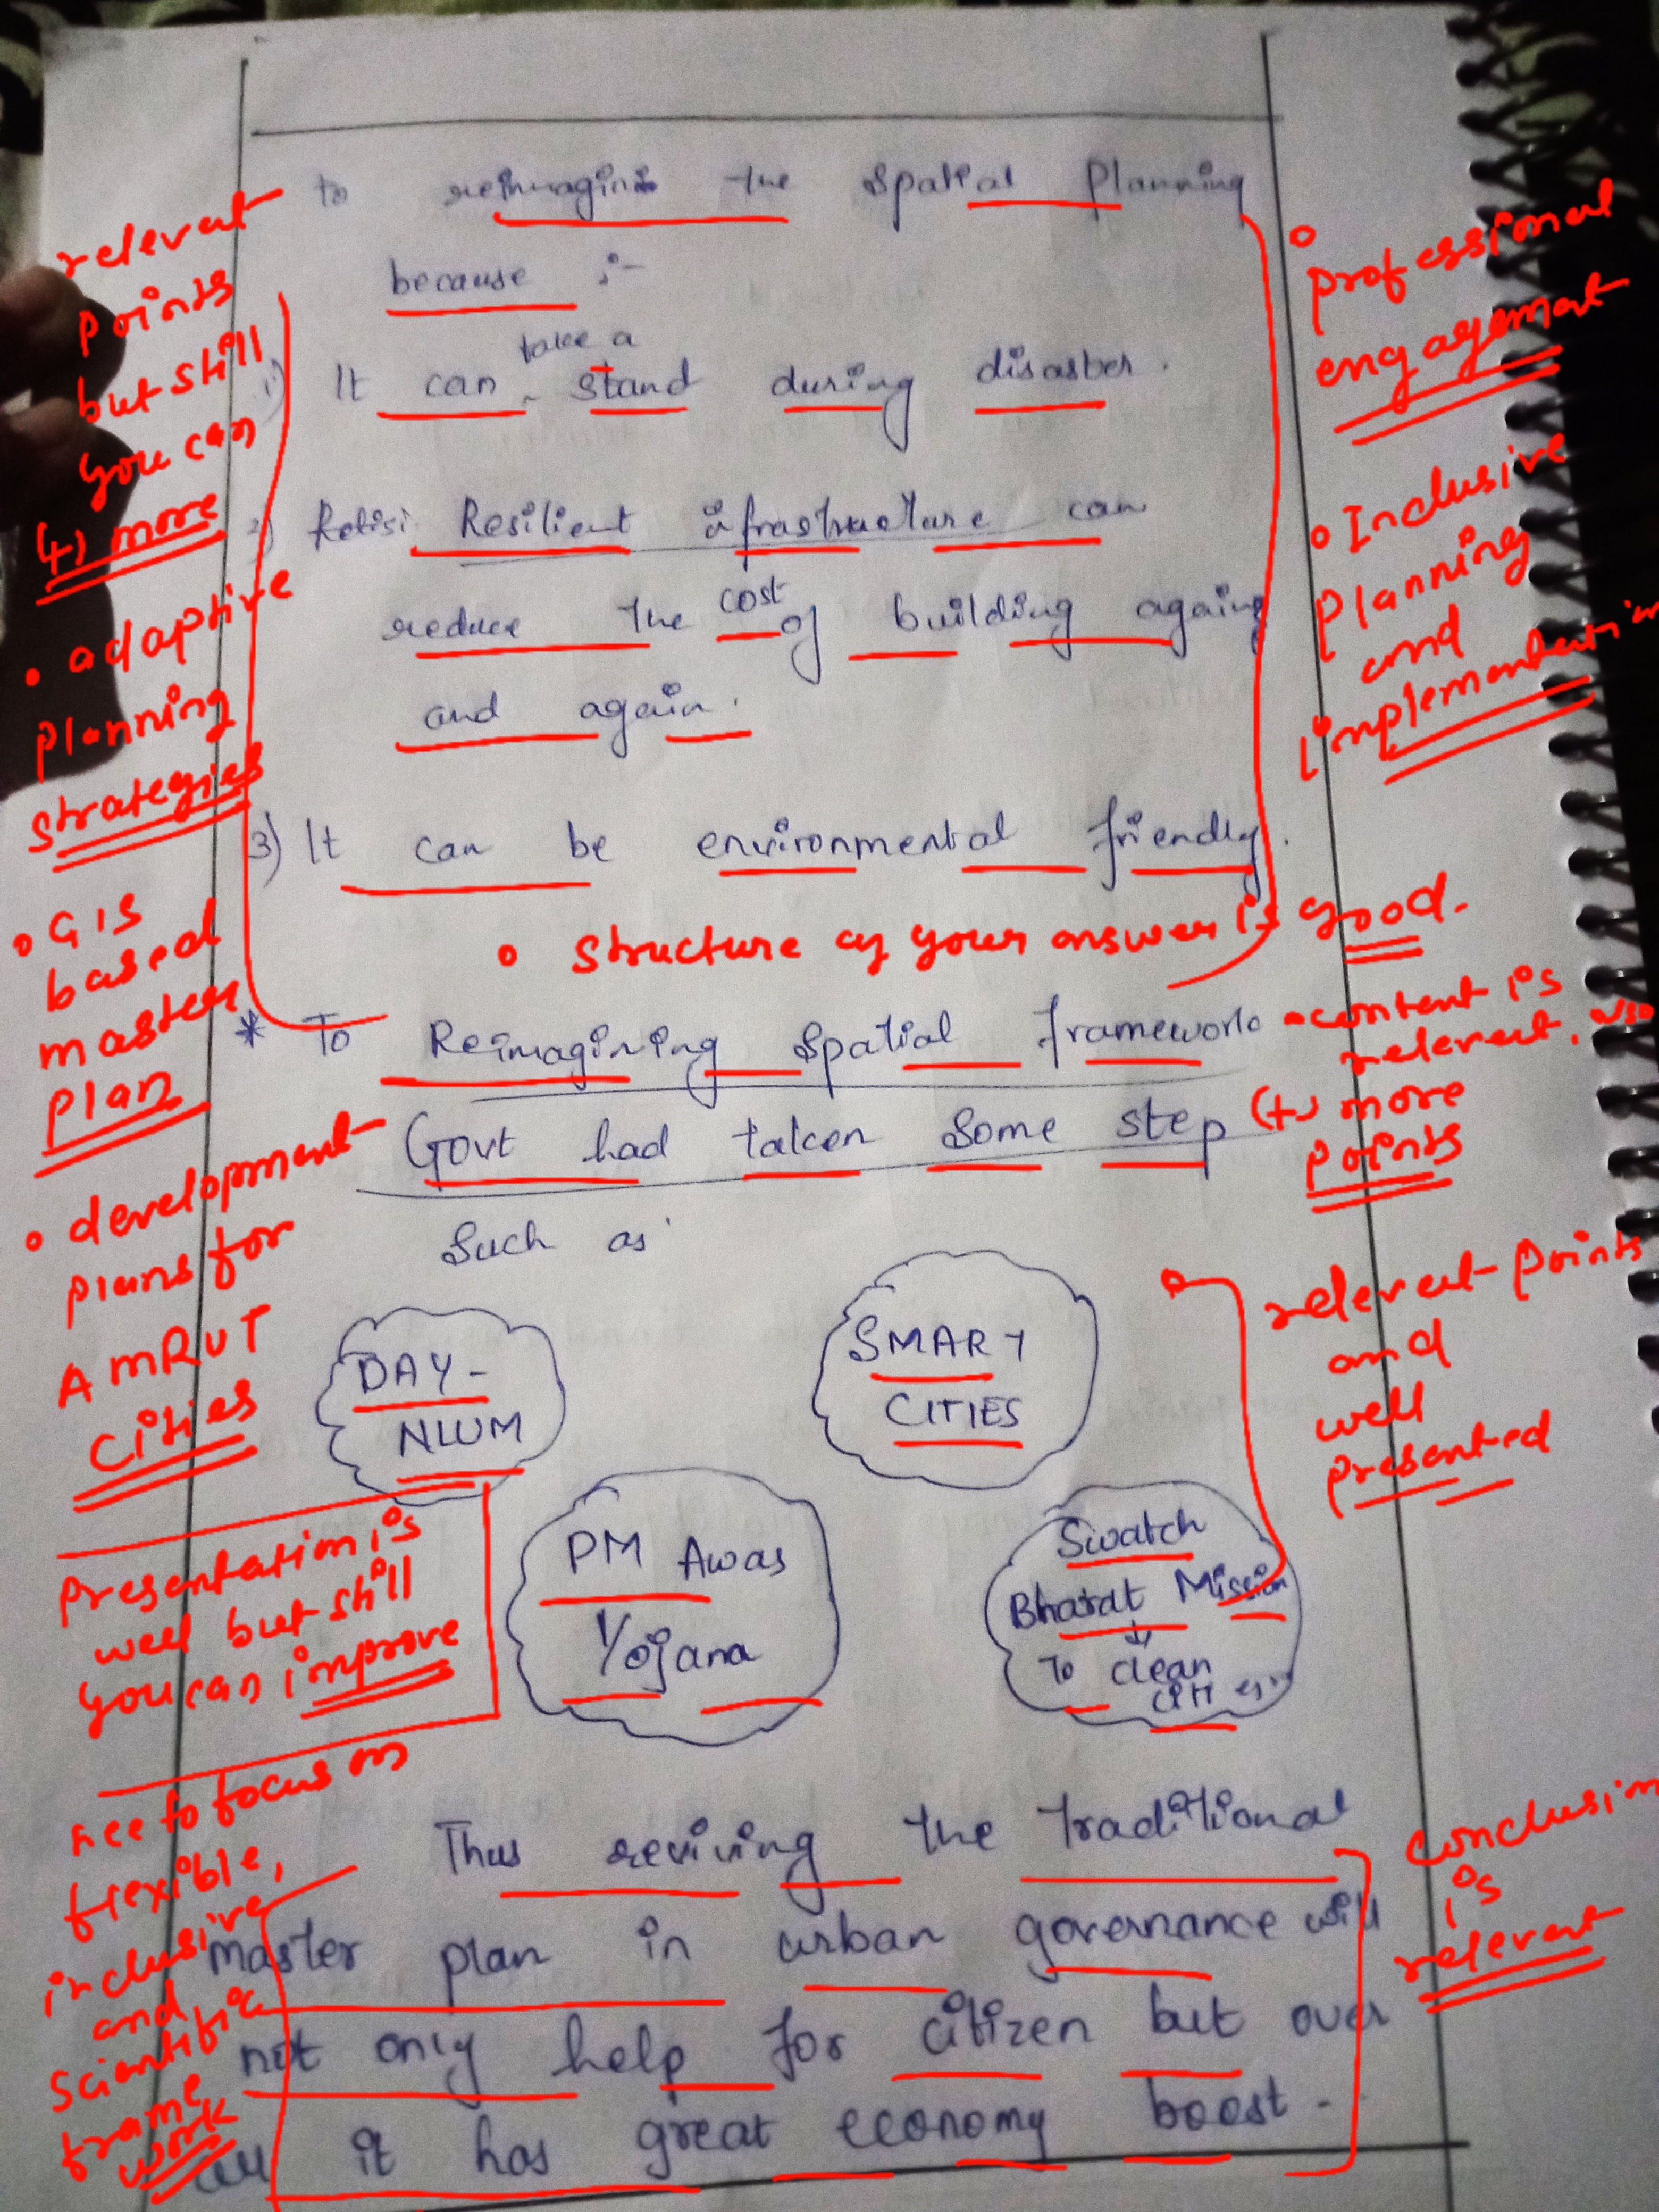 to reimagini the spatial planning
because :-
1) It can take a stand during disaster.
2) Resilient infrastructure can
reduce the cost of building againg
and again.
3) It can be environmental friendly.
* To Reimagining spatial framework
Govt had taken some step
Such as
DAY-
NLUM
SMART
CITIES
PM Awas
Yojana
Swatch
Bharat Mission
To clean
Thus reviving the traditional
master plan in urban governance will
not only help for citizen but over
all it has great economy boost.
relevat
points
but still
you can
(+) more
• adaptive
planning
strategies
• GIS
based
master
plan
• development
plans for
AMRUT
cities
presentation is
well but still
you can improve
focus on
flexible,
inclusive
and
scientific
frame
work
• professional
engagement
• Inclusive
planning
and
implementation
• structure of your answer is good.
• content is
relevent.
(+) more
points
relevent points
and
well
presented
conclusion
is
relevent